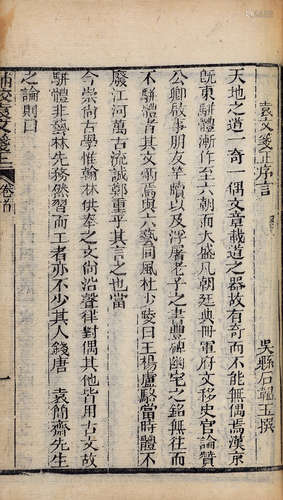 袁文箋正序言
吳縣石韞玉撰
天地之道一奇一偶文章載道之器故有奇而不能無偶焉漢京
既東駢體漸作至六朝而大盛凡朝廷典冊軍府文移史官論贊
公卿啟事朋友牋牘以及浮屠老子之書豐碑幽宅之銘無往而
不駢體者其文炳焉與六藝同風杜少陵曰王楊盧駱當時體不
廢江河萬古流誠鄭重乎其言之也當
今崇尚古學惟翰林供奉之文尚沿聲律對偶其他皆用古文故
駢體非藝林先務然習而工者亦不少其人錢唐 袁簡齋先生
之論則曰
補校袁文箋正
卷首
一